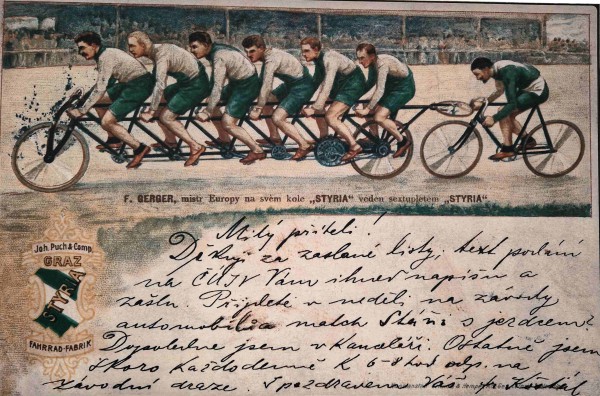 F. GERGER, mistr Europy na svém kole „STYRIA“ voden sextupletem „STYRIA“
Joh. Puch & Comp.
GRAZ
STYRIA
FAHRRAD-FABRIK
Milý příteli!
Děkuji za zaslané listy, text podání
na ČÚJV Vám ihned napíšu a
zašlu. Přijdete v neděli na závody
automobilů a match s jezdcem?
Dopoledne jsem v kanceláři. Ostatně jsem
skoro každodenně k 6-8 hod odp. na
závodní dráze. S pozdravem Váš